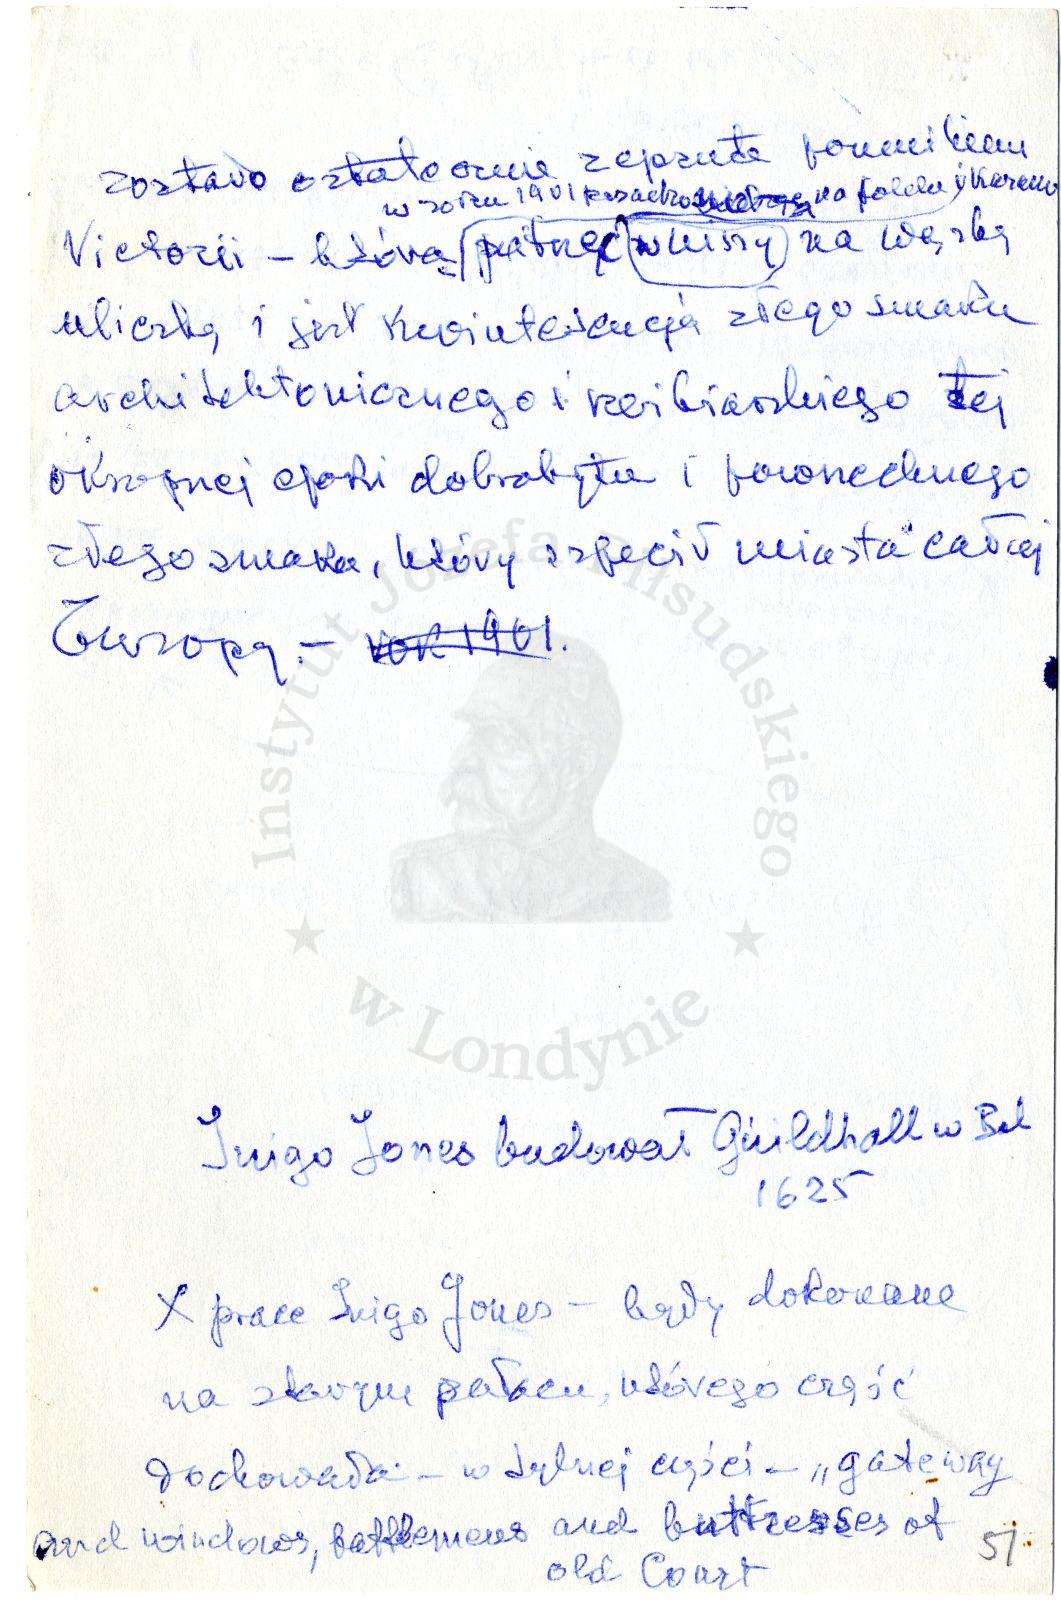 zostało ostatecznie zepsute pomnikiem
w roku 1901 na
Victorii – która patrzy w niszy na wąską
uliczkę i jest kwintesencją złego smaku
architektonicznego i rzeźbiarskiego tej
okropnej epoki dobrobytu i powszechnego
złego smaku, który szpecił miasta całej
Europy. – rok 1901.
Instytut Józefa Piłsudskiego
w Londynie
Inigo Jones budował Guildhall w
1625
X prace Inigo Jones – były dokonane
na starym pałacu, którego część
dochowała – w tylnej części – „gateway
and windows, battlemens and buttresses of
old Court
51